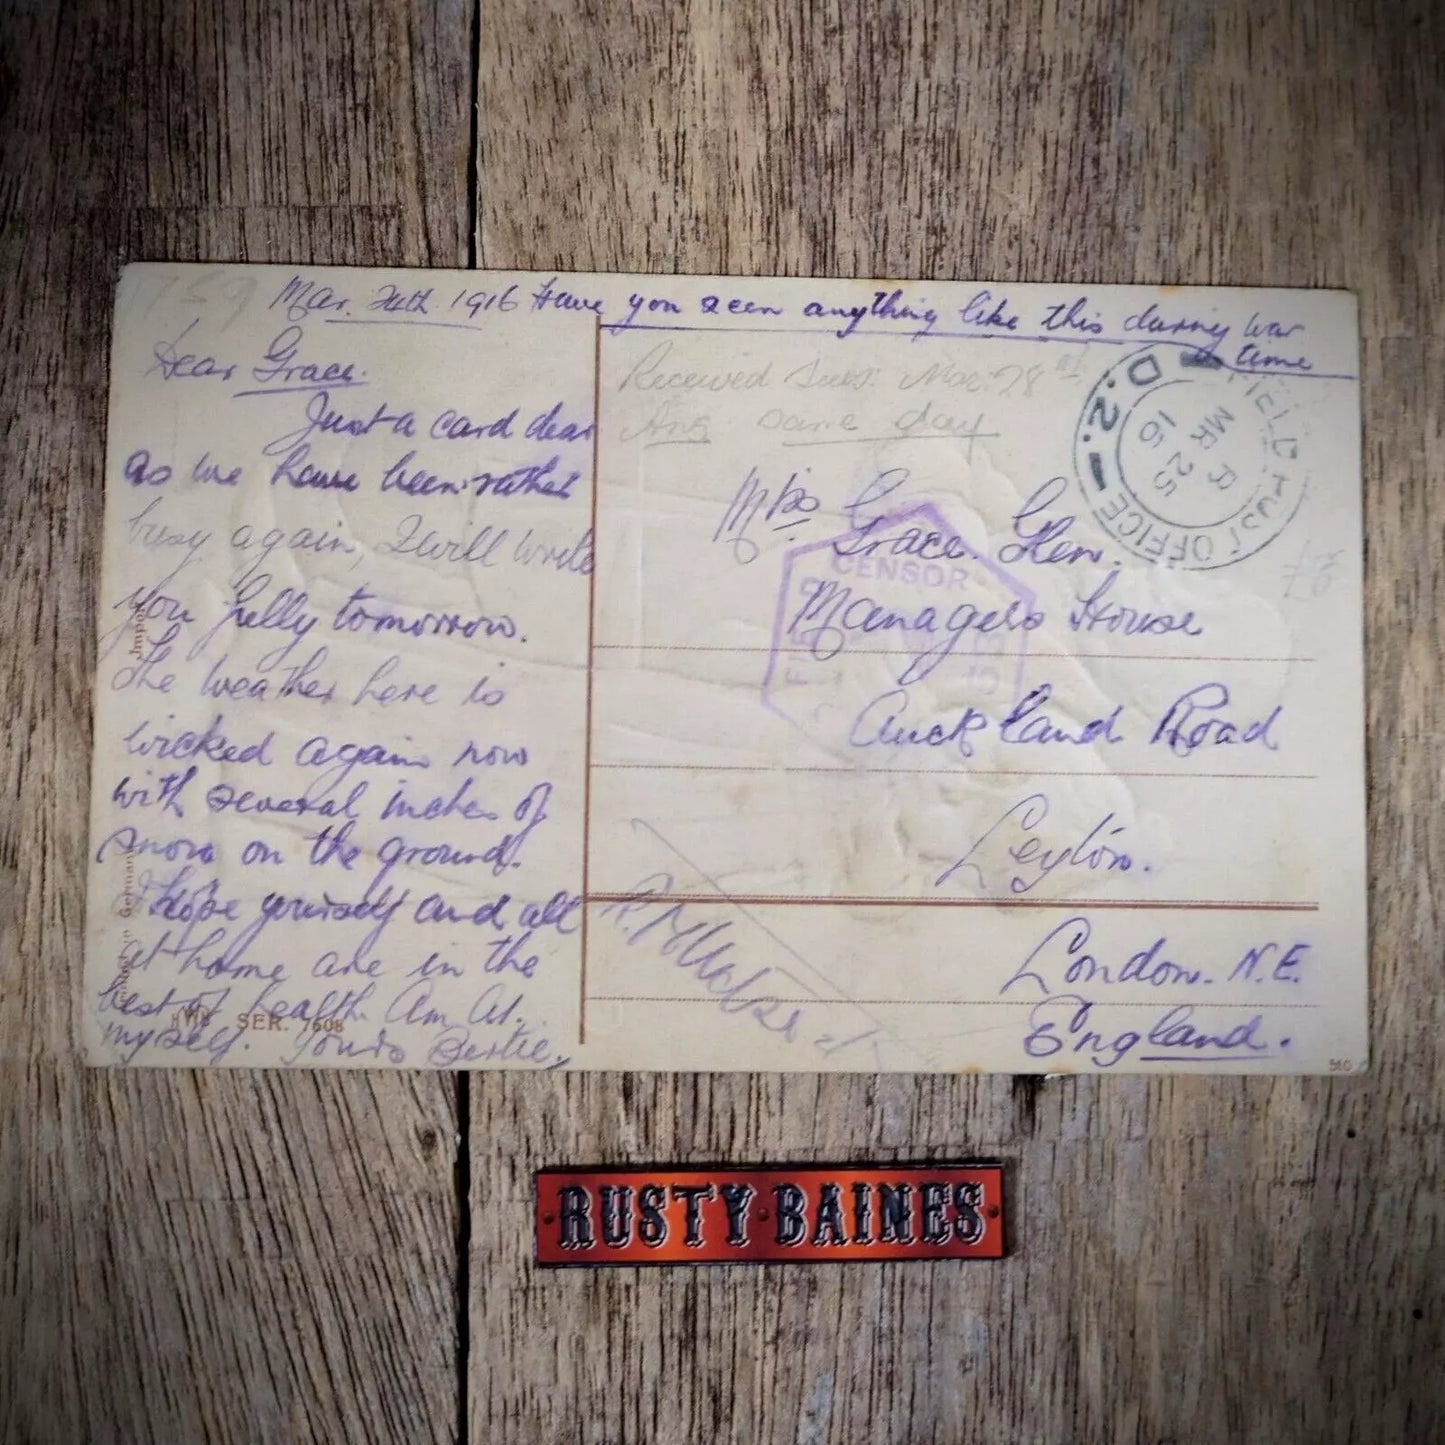 Mar. 24th. 1916 Have you seen anything like this during War
time
Dear Grace.
Just a card dear
as we have been rather
busy again, I will write
you fully tomorrow.
The weather here is
wicked again now
with several inches of
snow on the ground.
I hope yourself and all
at home are in the
best of health. Am At.
myself. Yours Bertie.
SER. 7608
Received Tues: Mar: 28
Ans same day
FIELD POST OFFICE
D.2.
MR 25
16
CENSOR
Grace
Managers House
Auckland Road
Leyton.
London. N.E.
England.
510
RUSTY BAINES